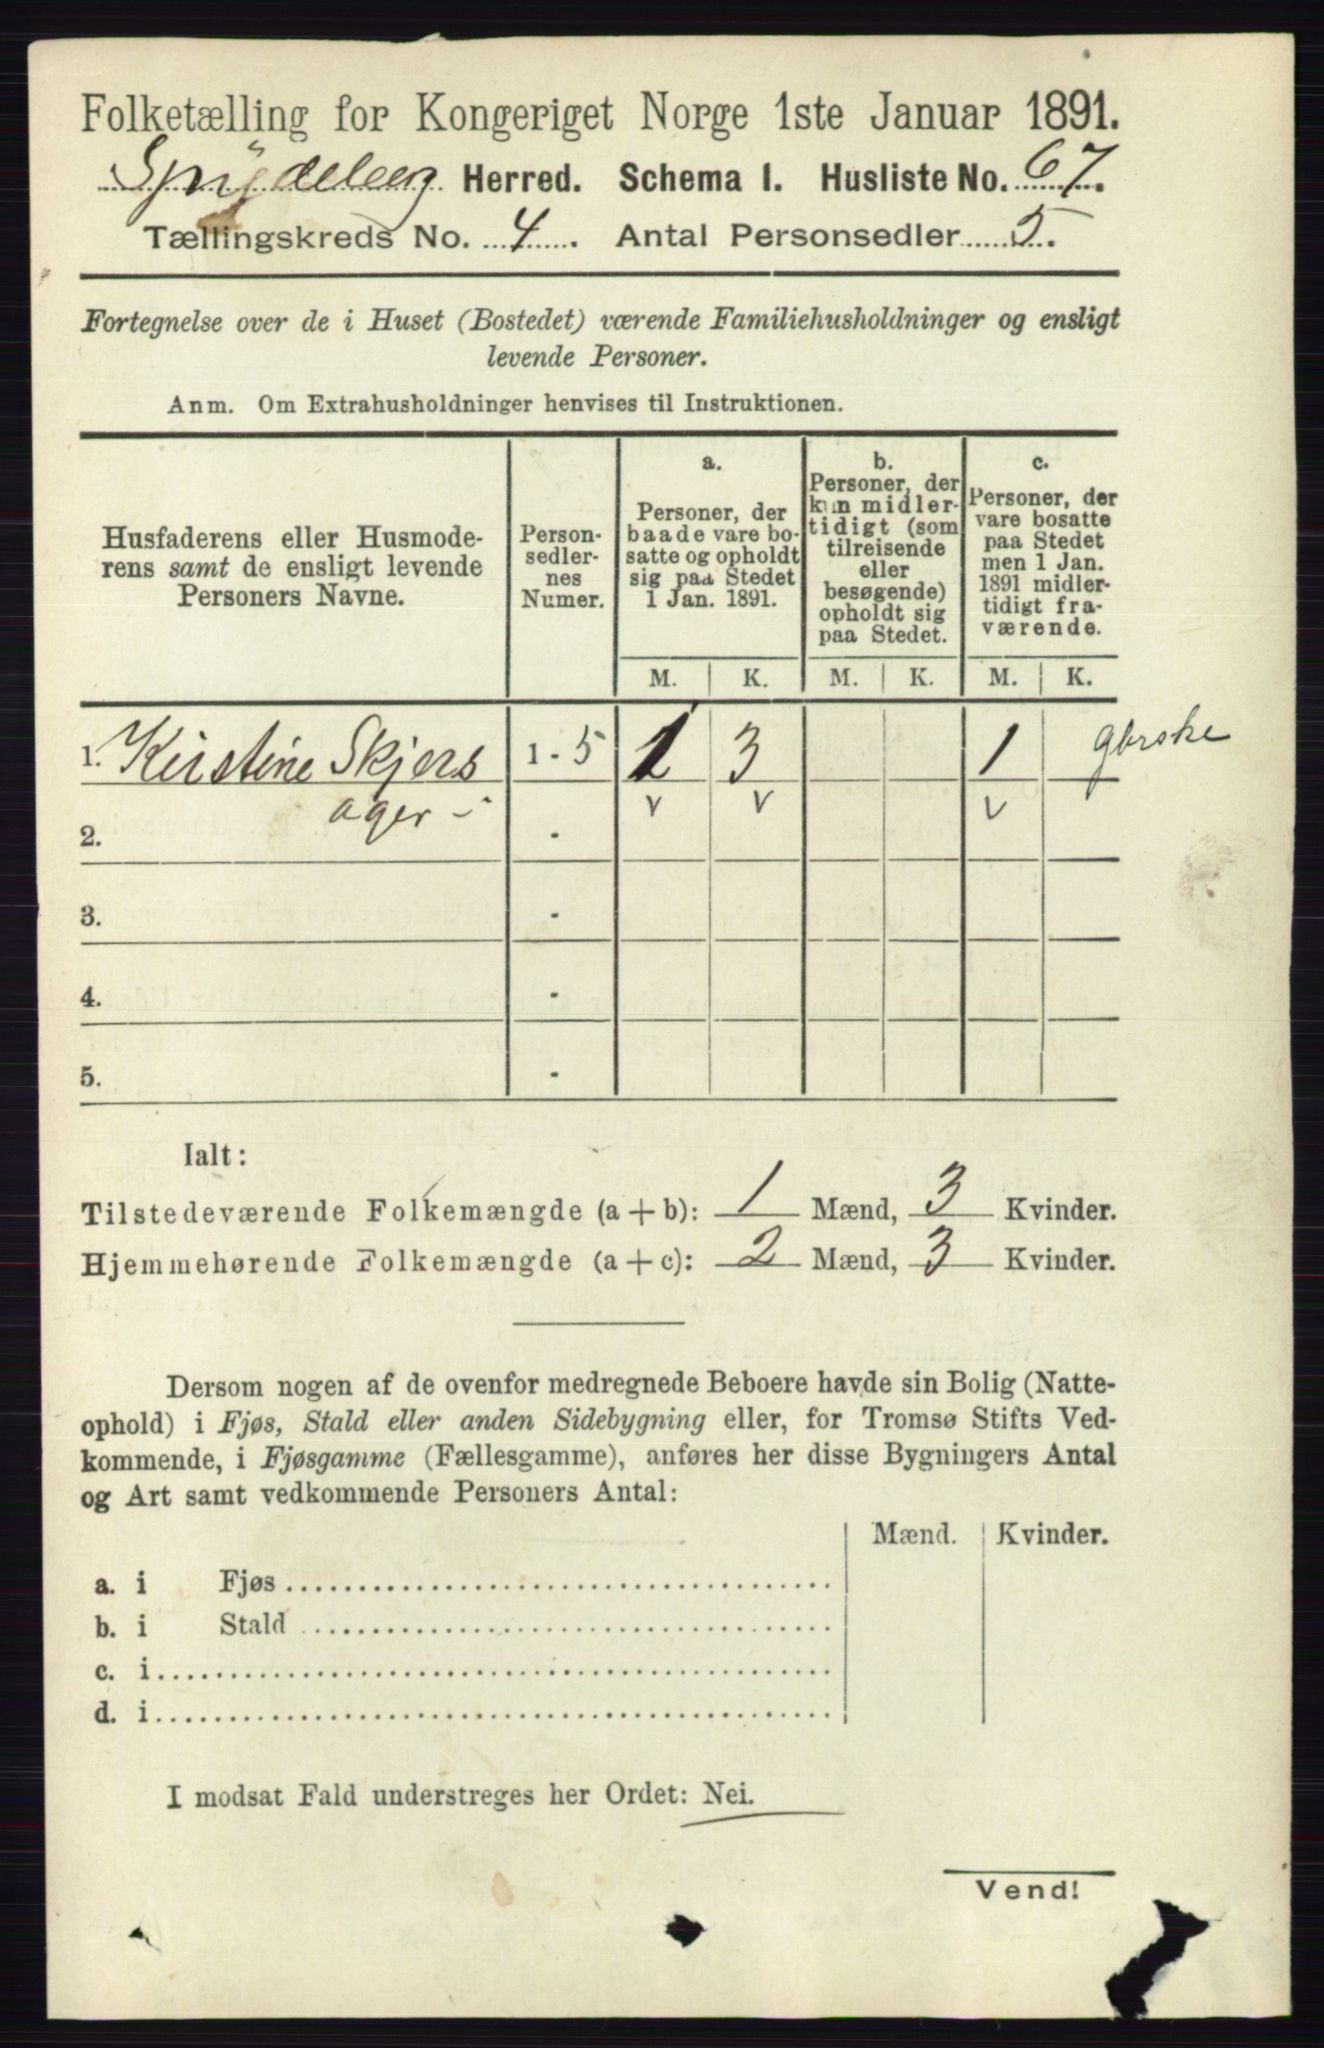 Folketælling for Kongeriget Norge 1ste Januar 1891.
Spydeberg Herred. Schema I. Husliste No. 67.
Tællingskreds No. 4. Antal Personsedler 5.
Fortegnelse over de i Huset (Bostedet) værende Familiehusholdninger og ensligt
levende Personer.
Anm. Om Extrahusholdninger henvises til Instruktionen.
Husfaderens eller Husmode-
rens samt de ensligt levende
Personers Navne.
Person-
sedler-
nes
Numer.
a.
Personer, der
baade vare bo-
satte og opholdt
sig paa Stedet
1 Jan. 1891.
b.
Personer, der
kun midler-
tidigt (som
tilreisende
eller
besøgende)
opholdt sig
paa Stedet.
c.
Personer, der
vare bosatte
paa Stedet
men 1 Jan.
1891 midler-
tidigt fra-
værende.
M. K. M. K. M. K.
1. Kirstine Skjers 1 - 5 1 3 1
ager - v v v
2. -
3. -
4. -
5. -
Ialt:
Tilstedeværende Folkemængde (a + b): 1 Mænd, 3 Kvinder.
Hjemmehørende Folkemængde (a + c): 2 Mænd, 3 Kvinder.
Dersom nogen af de ovenfor medregnede Beboere havde sin Bolig (Natte-
ophold) i Fjøs, Stald eller anden Sidebygning eller, for Tromsø Stifts Ved-
kommende, i Fjøsgamme (Fællesgamme), anføres her disse Bygningers Antal
og Art samt vedkommende Personers Antal:
Mænd. Kvinder.
a. i Fjøs
b. i Stald
c. i
d. i
I modsat Fald understreges her Ordet: Nei.
Vend!